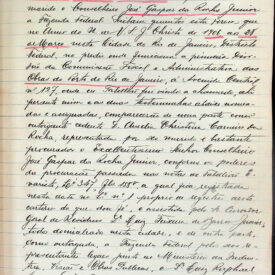 marido o Conselheiro José Gaspar da Rocha Junior
e Fazenda Federal Saibam quantos este virem que
no Anno de N. S. J. Christo de 1906 aos 28
de Março nesta Cidade do Rio de Janeiro, Districto
Federal, em o predio onde funcciona a
da Commissão Fiscal e Administrativa das
Obras do Porto do Rio de Janeiro, á Avenida Central
nº 107, onde eu Tabellião fui vindo a chamado, ahi
perante mim e as duas testemunhas abaixo nomea-
das e assignadas, compareceram de uma parte como
outorgante cedente D. Amelia Christina
Rocha representada por seu marido e bastante
procurador o Conselheiro
José Gaspar da Rocha Junior, conforme os poderes
da procuração passada nas notas do tabellião
Lº 367 fls 188 a qual fica registrada
nesta data no Lº nº 1 proprio de registros deste
cartorio do que dou fé, e assistida pelo
Geral de Residuos
todos domiciliados nesta cidade, e de outra parte,
como outorgada, a Fazenda Federal pelo seu re-
presentante legal perante o Ministerio da Indus-
tria, Viação e Obras Publicas, o Dr Luiz Raphael